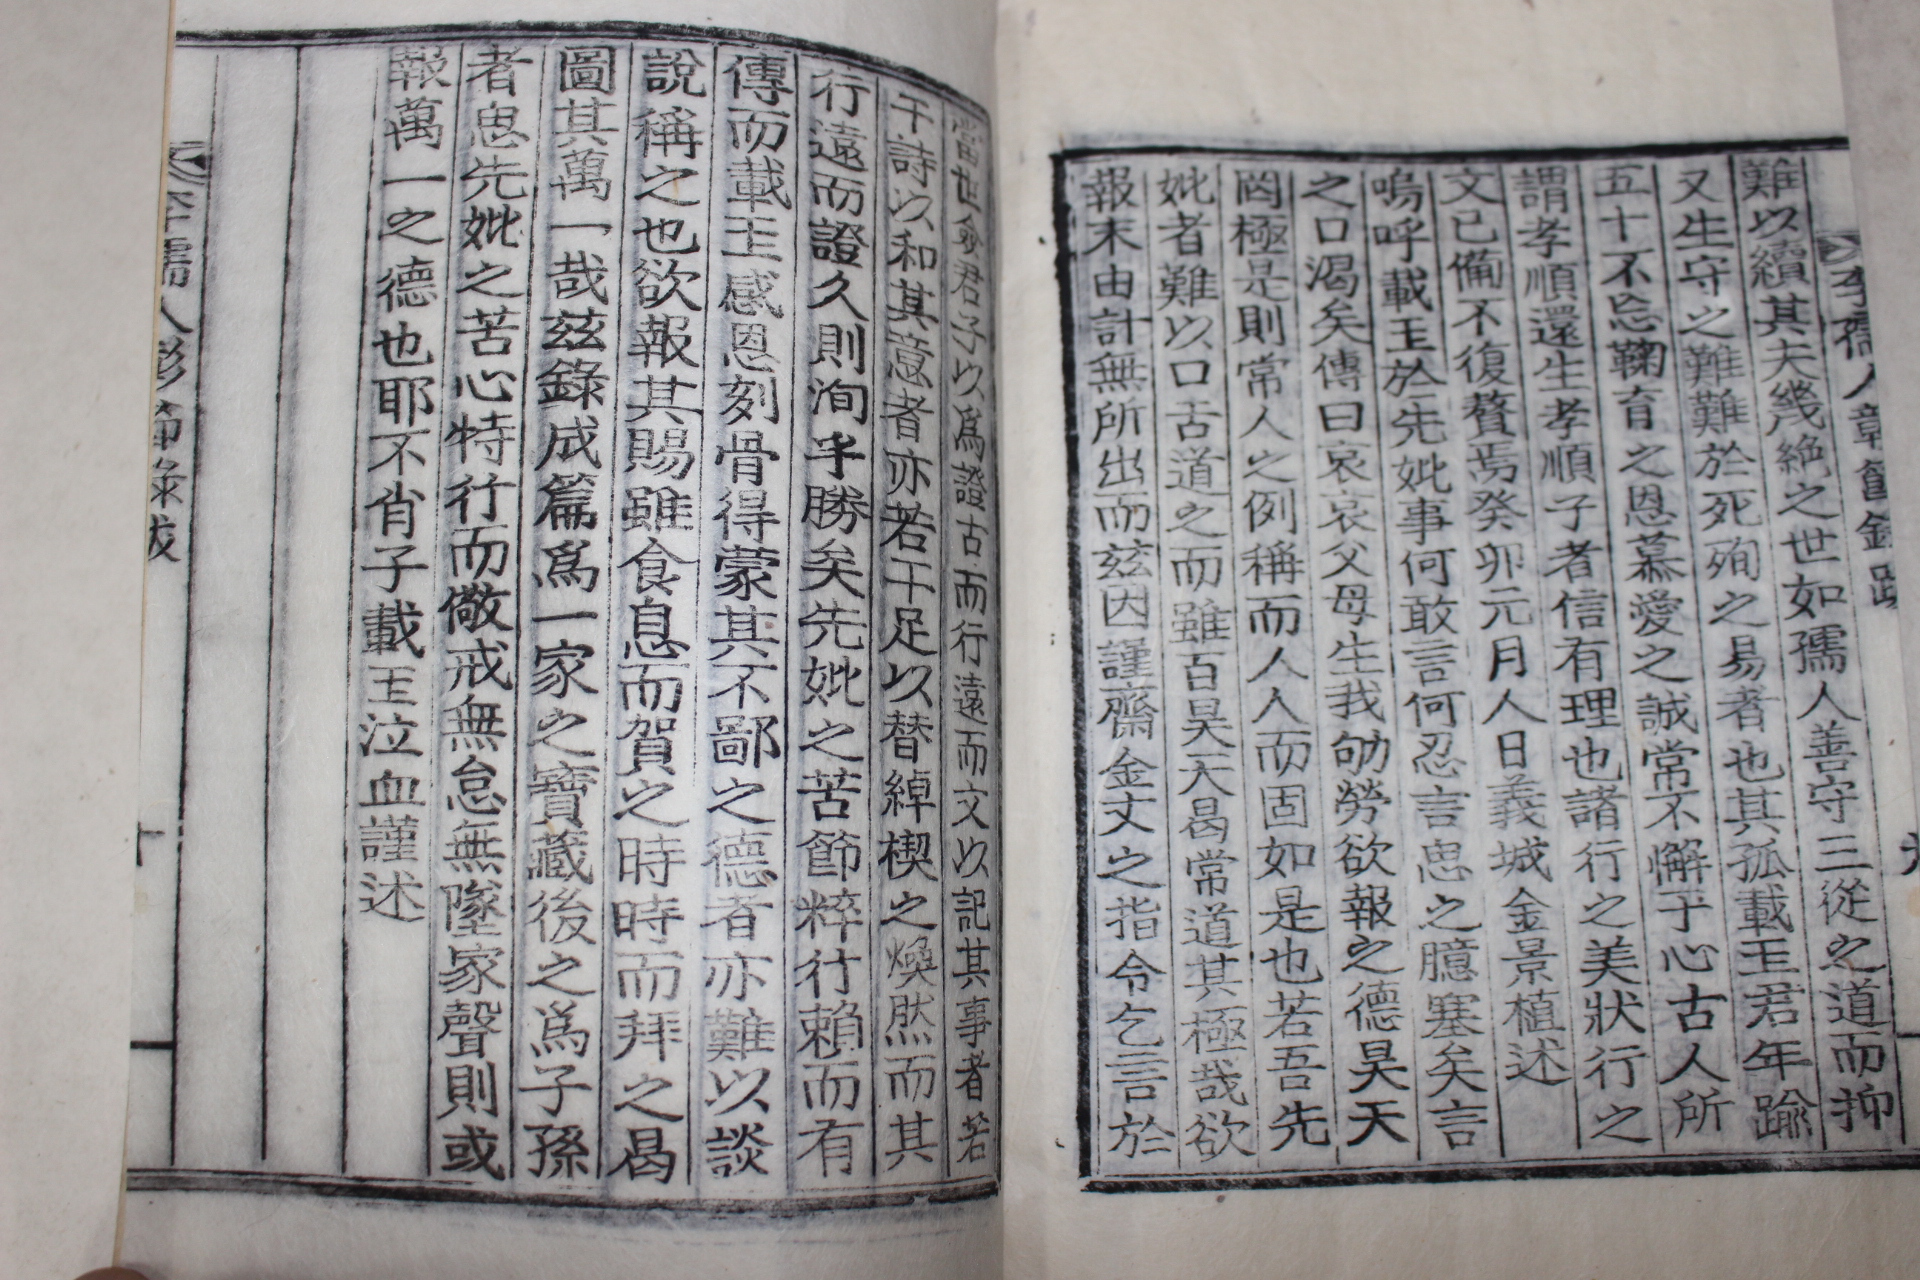 李孺人彰節錄跋
難以續其夫幾絶之世如孺人善守三從之道而抑
又生守之難難於死殉之易者也其孤載王君年踰
五十不忘鞠育之恩慕愛之誠常不懈于心古人所
謂孝順還生孝順子者信有理也諸行之美狀行之
文已備不復贅焉癸卯元月人日義城金景植述
嗚呼載王於先妣事何敢言何忍言忠之臆塞矣言
之口渴矣傳曰哀哀父母生我劬勞欲報之德昊天
罔極是則常人之例稱而人人而固如是也若吾先
妣者難以口舌道之而雖百昊天曷常道其極哉欲
報末由計無所出而茲因謹齋金丈之指令乞言於
當世僉君子以爲證古而行遠而文以記其事者若
干詩以和其意者亦若干足以替綽楔之煥然而其
行遠而證久則洵手勝矣先妣之苦節粹行賴而有
傳而載王感恩刻骨得蒙其不鄙之德者亦難以談
說稱之也欲報其賜雖食息而賀之時時而拜之曷
圖其萬一哉茲錄成篇爲一家之寶藏後之爲子孫
者思先妣之苦心特行而儆戒無怠無墜家聲則或
報萬一之德也耶不肖子載王泣血謹述
李孺人彰節錄跋
十